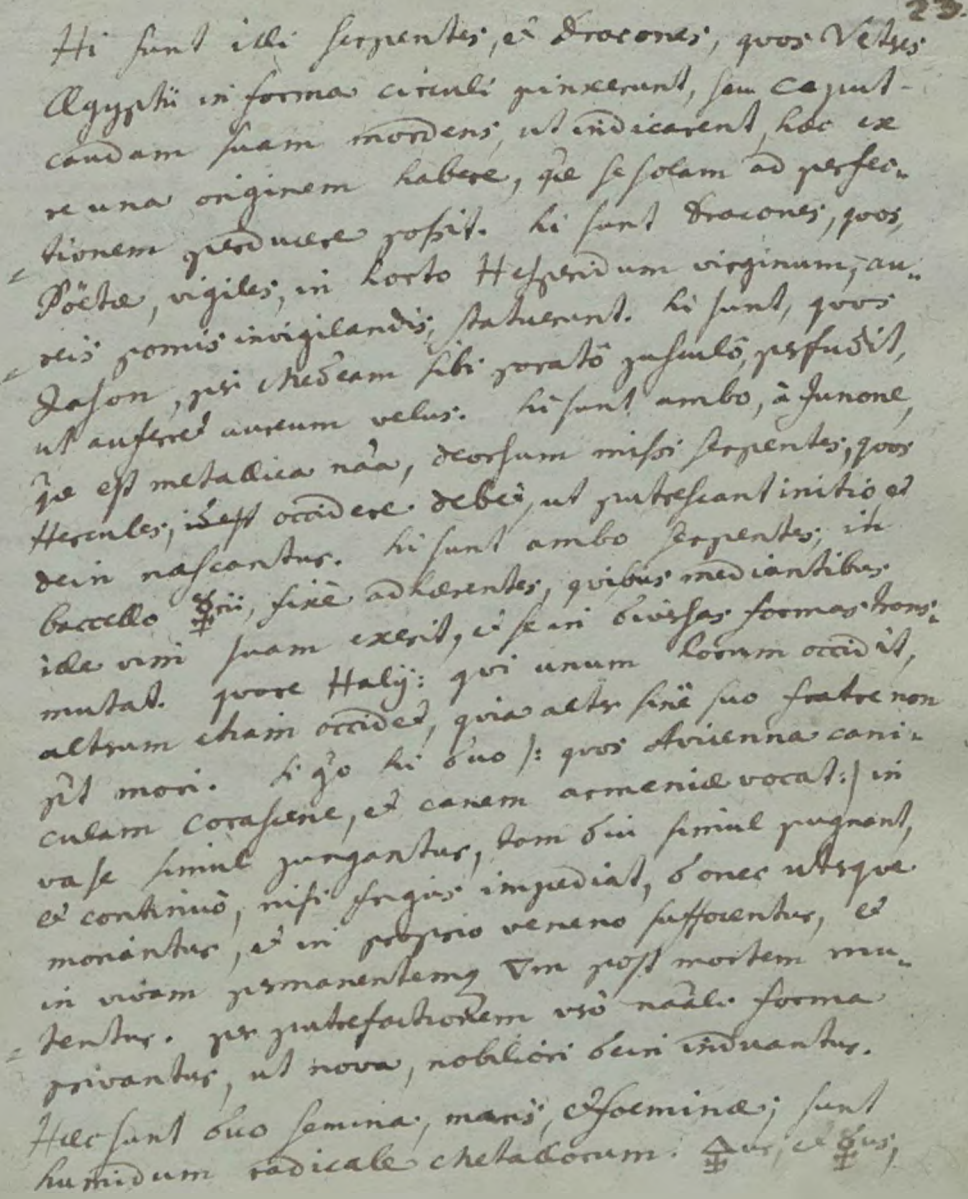 23.
Hi sunt illi serpentes, et Dracones, quos Vetres
Ægyptii in forma circuli pinxerunt, seu caput
caudam suam mordens, ut indicarent, hæc ex
re una originem habere, quæ se solam ad perfec„
tionem perducere possit. hi sunt Dracones, quos,
Poëtæ, vigiles, in horto Hesperidum virginum, au„
reis pomis invigilandis, statuerunt. hi sunt, quos
Jason, per Medeam sibi paratô jusculô, perfudit,
ut auferret aureum velus. hi sunt ambo, à Junone,
quæ est metallica nãa, deorsum missi serpentes, quos
Hercules, occidere debet, ut putrescant initio et
dein nascantur. hi sunt ambo serpentes, in
baccello ☿rii, fixè adhærentes, quibus mediantibus
ille vim suam exerit, et se in diversas formas trans„
mutat. quare Halÿ: qui unum horum occidit,
altrum etiam occidet, quia altr sinè suo fratre non
pt mori. hi gõ hi duo /: quos Avicenna cani„
culam Corascene, et canem armeniæ vocat:/ in
vase simul jungantur, tam diu simul pugnant,
et continuò, nisi frigus impediat, donec utrque
moriantur, et in proprio veneno suffocentur, et
in vivam prmanentemq ▽m post mortem mu„
tentur. pr putrefactionem vrò nãali forma
privantur, ut nova, nobiliori dein induantur.
Hæc sunt duo semina, maris, et foeminæ; sunt
humidum radicale Metallorum. 🜍ur, et ☿ius,